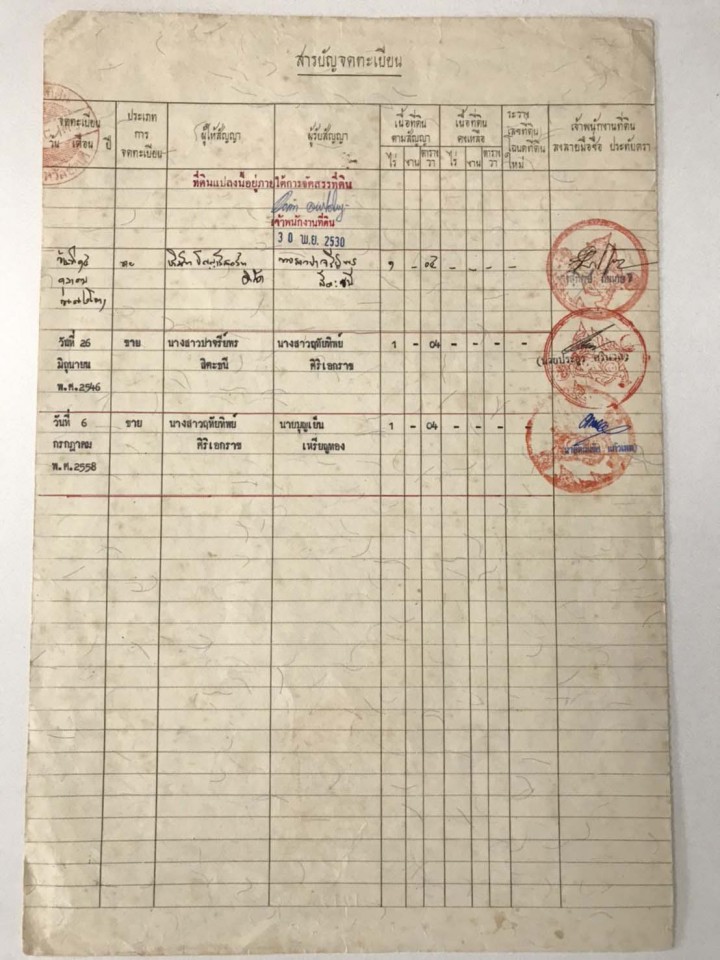 สารบัญจดทะเบียน
จดทะเบียน
วัน เดือน ปี
ประเภท
การ
จดทะเบียน
ผู้ให้สัญญา
ผู้รับสัญญา
เนื้อที่ดิน
ตามสัญญา
ไร่ งาน ตาราง
วา
เนื้อที่ดิน
คงเหลือ
ไร่ งาน ตาราง
วา
ระวาง
เลขที่ดิน
โฉนดที่ดิน
ใหม่
เจ้าพนักงานที่ดิน
ลงลายมือชื่อ ประทับตรา
ที่ดินแปลงนี้อยู่ภายใต้การจัดสรรที่ดิน
เจ้าพนักงานที่ดิน
30 พ.ย. 2530
ขาย
๑ - ๐๔ - - - -
วันที่ 26 ขาย นางสาวปาจรีย์พร นางสาวฤทัยทิพย์ 1 - 04 - - - -
มิถุนายน สิตะชนี ศิริเอกราช
พ.ศ.2546
วันที่ 6 ขาย นางสาวฤทัยทิพย์ นายบุญเย็น 1 - 04 - - - -
กรกฎาคม ศิริเอกราช เหรียญทอง
พ.ศ.2558